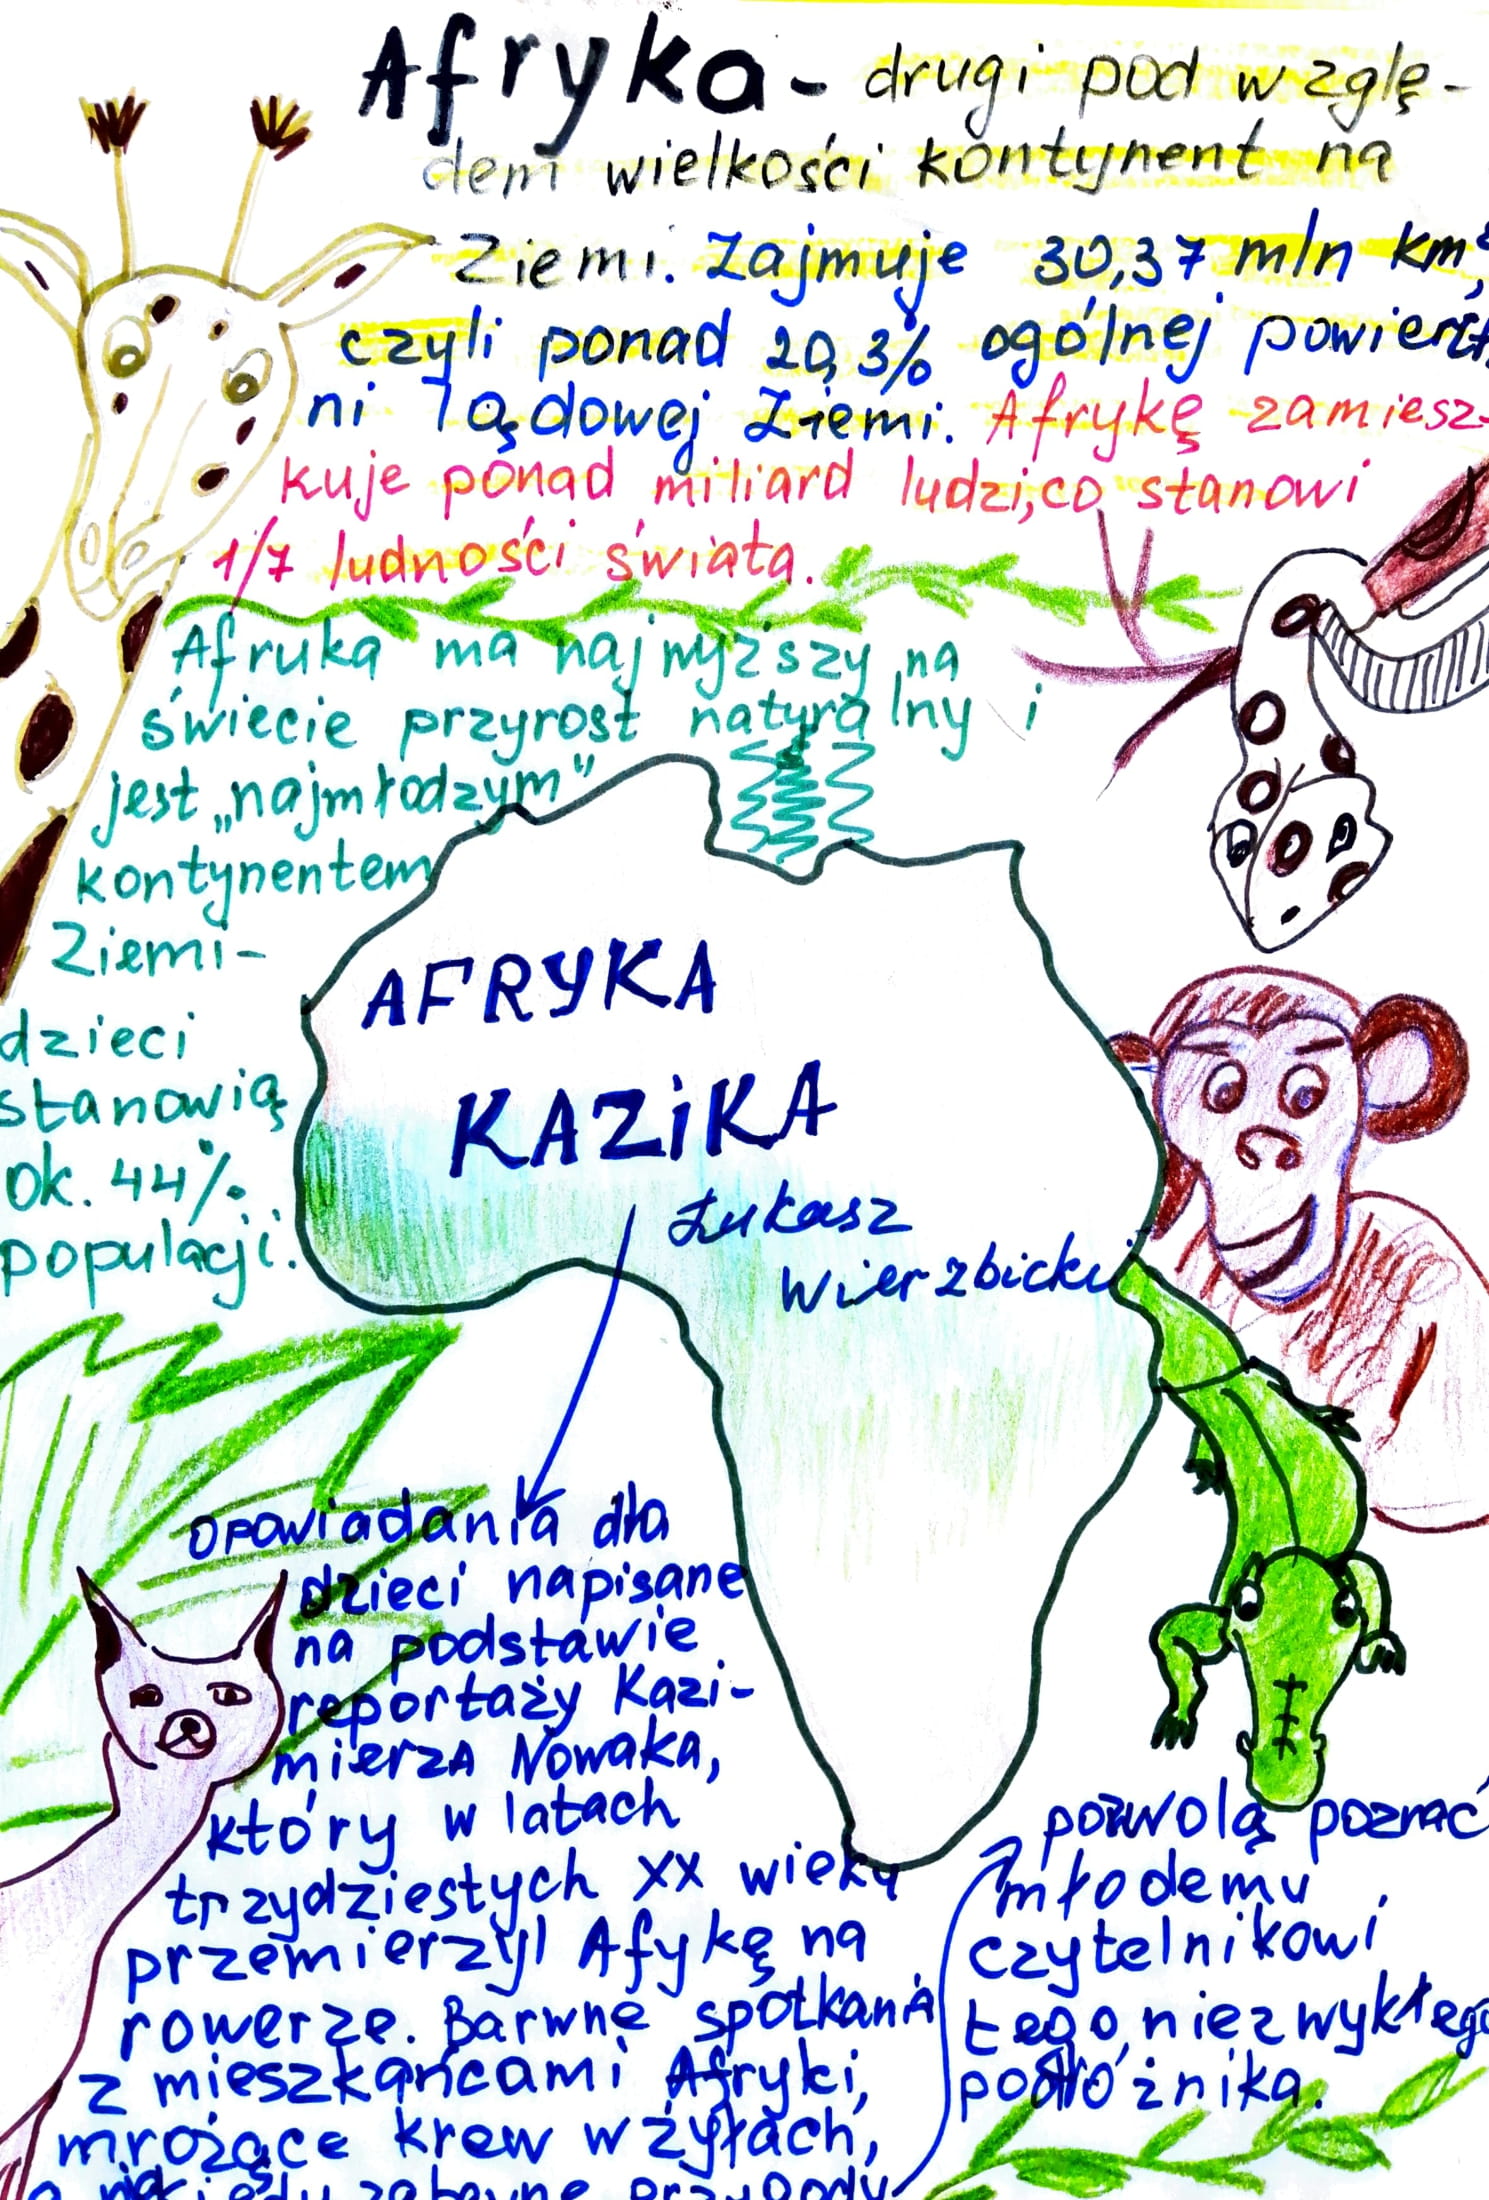 Afryka - drugi pod wzglę-
dem wielkości kontynent na
Ziemi. Zajmuje 30,37 mln km²,
czyli ponad 20,3% ogólnej powierzch
ni lądowej Ziemi. Afrykę zamiesz-
kuje ponad miliard ludzi, co stanowi
1/7 ludności świata.
Afruka ma najwyższy na
świecie przyrost naturalny i
jest „najmłodzym"
kontynentem
Ziemi-
dzieci
stanowią
ok. 44%
populacji.
AFRYKA
KAZIKA
Łukasz
Wierzbicki
Opowiadania dla
dzieci napisane
na podstawie
reportaży Kazi-
mierza Nowaka,
który w latach
trzydziestych XX wieku
przemierzył Afykę na
rowerze. Barwne spotkania
z mieszkańcami Afryki,
mrożące krew w żyłach,
a niekiedy zabawne przygody
pozwolą poznać
młodemu
czytelnikowi
tego niezwykłego
podróżnika.